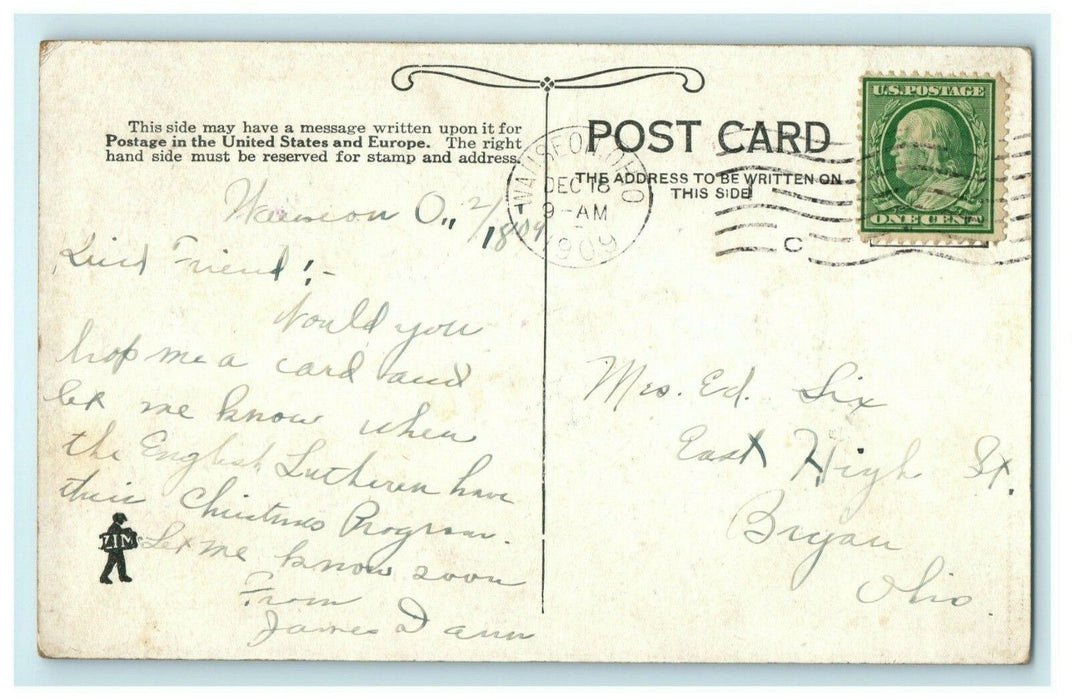 This side may have a message written upon it for
Postage in the United States and Europe. The right
hand side must be reserved for stamp and address.
POST CARD
THE ADDRESS TO BE WRITTEN ON
THIS SIDE
U.S. POSTAGE
ONE CENT
WAUSEON, OHIO
DEC 18
9-AM
1909
C
Wauseon O.,
Friend!-
Would you
drop me a card and
let me know when
the English Lutheren have
their Christmas Program.
Let me know soon
From
James Dann
ZIM
Mrs. Ed. Six
East High St.
Bryan
Ohio.